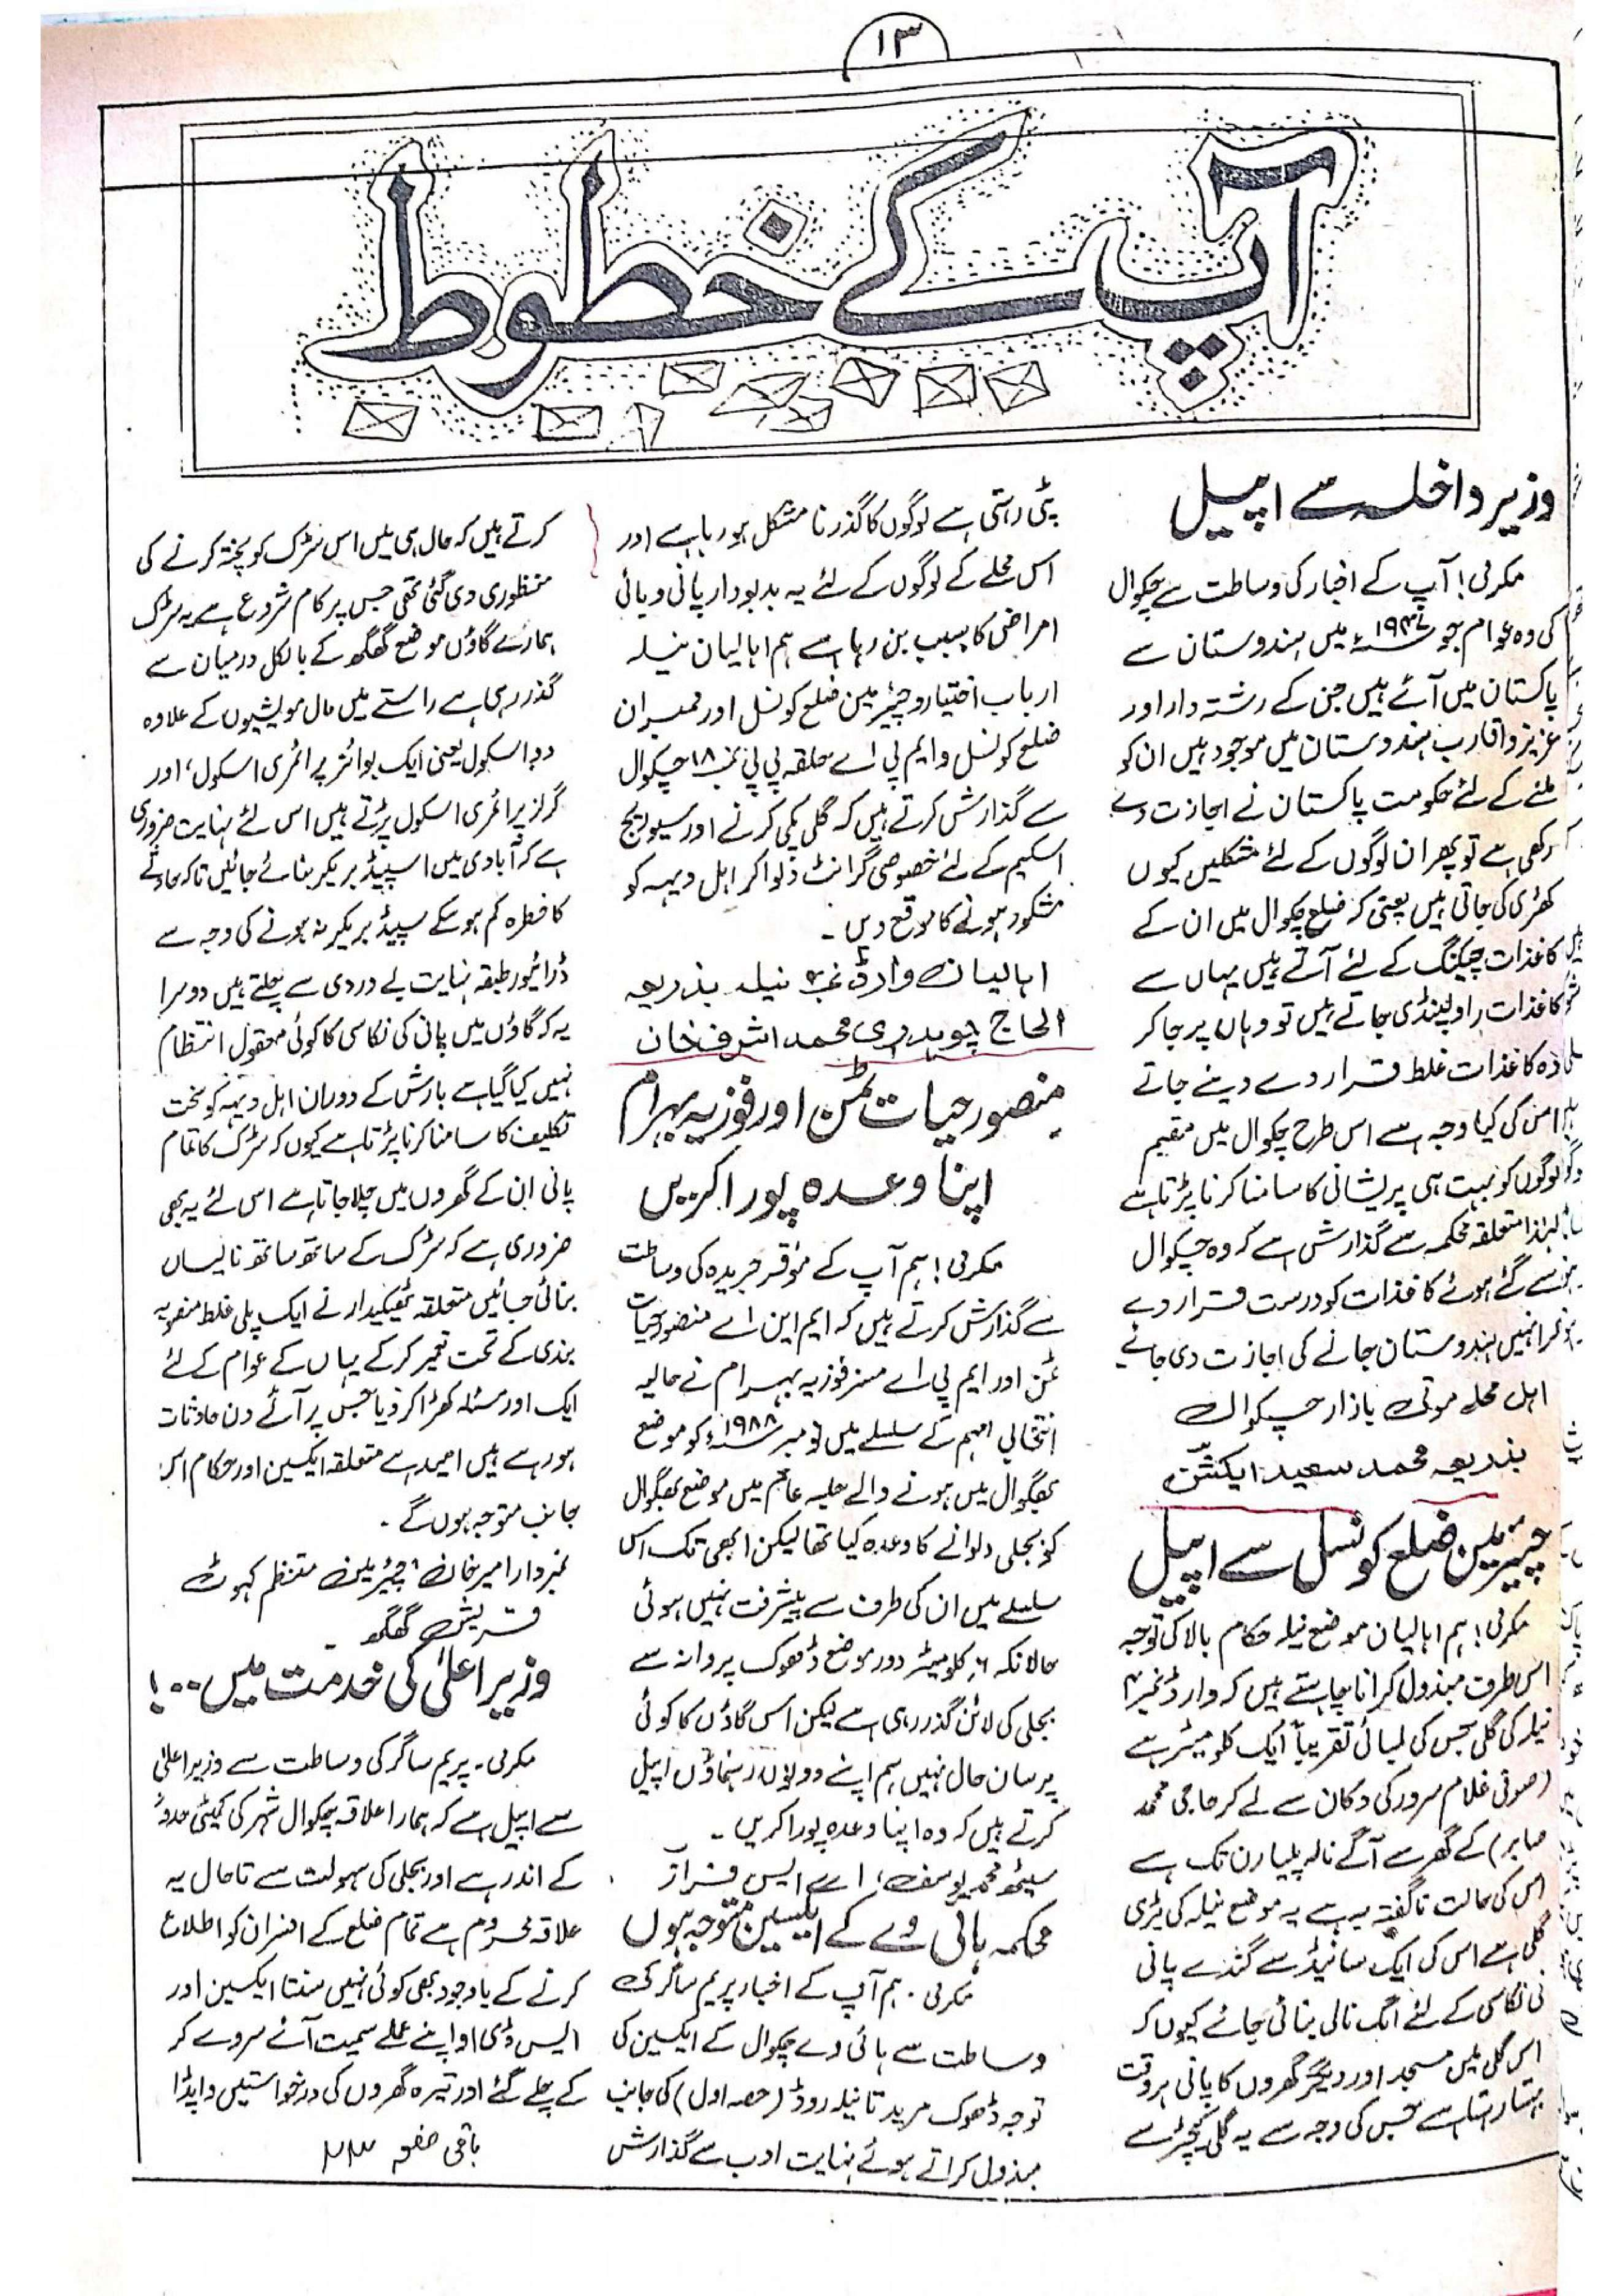 ۱۳
آپ کے خطوط
وزیر داخلہ سے اپیل
مکرمی! آپ کے اخبار کی وساطت سے چکوال
کی وہ عوام جو ۱۹۴۷ء میں ہندوستان سے
پاکستان میں آئے ہیں جن کے رشتہ دار اور
عزیز و اقارب ہندوستان میں موجود ہیں ان کو
ملنے کے لئے حکومت پاکستان نے اجازت دے
رکھی ہے تو پھر ان لوگوں کے لئے مشکلیں کیوں
کھڑی کی جاتی ہیں یعنی کہ ضلع چکوال میں ان کے
کاغذات چیکنگ کے لئے آتے ہیں یہاں سے
کاغذات راولپنڈی جاتے ہیں تو وہاں پر جا کر
وہ کاغذات غلط قرار دے دیئے جاتے
اس کی کیا وجہ ہے اس طرح چکوال میں مقیم
لوگوں کو بہت ہی پریشانی کا سامنا کرنا پڑتا ہے
لہٰذا متعلقہ محکمہ سے گذارش ہے کہ وہ چکوال
سے گئے ہوئے کاغذات کو درست قرار دے
کر انہیں ہندوستان جانے کی اجازت دی جائے
اہل محلہ موتی بازار چکوال
بذریعہ محمد سعید ایکشن
چیئرمین ضلع کونسل سے اپیل
مکرمی! ہم اہالیان موضع نیلہ حکام بالا کی توجہ
اس طرف مبذول کرانا چاہتے ہیں کہ وارڈ نمبر ۴
نیلہ کی گلی جس کی لمبائی تقریباً ایک کلومیٹر ہے
(صوفی غلام سرور کی دکان سے لے کر حاجی محمد
صابر) کے گھر سے آگے نالہ پلیارن تک ہے
اس کی حالت ناگفتہ بہ ہے یہ موضع نیلہ کی بڑی
گلی ہے اس کی ایک سائیڈ سے گندے پانی
کی نکاسی کے لئے الگ نالی بنائی جائے کیوں کہ
اس گلی میں مسجد اور دیگر گھروں کا پانی ہر وقت
بہتا رہتا ہے جس کی وجہ سے یہ گلی کیچڑ سے
بنی رہتی ہے لوگوں کا گذرنا مشکل ہو رہا ہے اور
اس محلے کے لوگوں کے لئے یہ بدبودار پانی وبائی
امراض کا سبب بن رہا ہے ہم اہالیان نیلہ
ارباب اختیار و چیئرمین ضلع کونسل اور ممبران
ضلع کونسل و ایم پی اے حلقہ پی پی نمبر ۱۸ چکوال
سے گذارش کرتے ہیں کہ گلی پکی کرنے اور سیوریج
اسکیم کے لئے خصوصی گرانٹ دلوا کر اہل دیہہ کو
مشکور ہونے کا موقع دیں۔
اہالیان وارڈ نمبر ۴ نیلہ بذریعہ
الحاج چوہدری محمد اشرف خان
منصور حیات ٹمن اور فوزیہ بہرام
اپنا وعدہ پورا کریں
مکرمی! ہم آپ کے موقر جریدہ کی وساطت
سے گذارش کرتے ہیں کہ ایم این اے منصور حیات
ٹمن اور ایم پی اے مسز فوزیہ بہرام نے حالیہ
انتخابی مہم کے سلسلے میں نومبر ۱۹۸۸ء کو موضع
بھگوال میں ہونے والے جلسہ عام میں موضع بھگوال
کو بجلی دلوانے کا وعدہ کیا تھا لیکن ابھی تک اس
سلسلے میں ان کی طرف سے پیشرفت نہیں ہوئی
حالانکہ ۶ کلومیٹر دور موضع ڈھوک پروانہ سے
بجلی کی لائن گذر رہی ہے لیکن اس گاؤں کا کوئی
پرسان حال نہیں ہم اپنے دونوں رہنماؤں اپیل
کرتے ہیں کہ وہ اپنا وعدہ پورا کریں۔
سیٹھ محمد یوسف، اے ایس فراز
محکمہ ہائی وے کے ایکسین متوجہ ہوں
مکرمی۔ ہم آپ کے اخبار پریم ساگر کی
وساطت سے ہائی وے چکوال کے ایکسین کی
توجہ ڈھوک مرید تا نیلہ روڈ (حصہ اول) کی جانب
مبذول کراتے ہوئے نہایت ادب سے گذارش
کرتے ہیں کہ حال ہی میں اس سڑک کو پختہ کرنے کی
منظوری دی گئی تھی جس پر کام شروع ہے یہ سڑک
ہمارے گاؤں موضع گھگھ کے بالکل درمیان سے
گذر رہی ہے راستے میں مال مویشیوں کے علاوہ
دو اسکول یعنی ایک بوائز پرائمری اسکول، اور
گرلز پرائمری اسکول پڑتے ہیں اس لئے نہایت ضروری
ہے کہ آبادی میں اسپیڈ بریکر بنائے جائیں تاکہ حادثے
کا خطرہ کم ہو سکے سپیڈ بریکر نہ ہونے کی وجہ سے
ڈرائیور طبقہ نہایت بے دردی سے چلتے ہیں دوسرا
یہ کہ گاؤں میں پانی کی نکاسی کا کوئی معقول انتظام
نہیں کیا گیا ہے بارش کے دوران اہل دیہہ کو سخت
تکلیف کا سامنا کرنا پڑتا ہے کیوں کہ سڑک کا تمام
پانی ان کے گھروں میں چلا جاتا ہے اس لئے یہ بھی
ضروری ہے کہ سڑک کے ساتھ ساتھ نالیاں
بنائی جائیں متعلقہ ٹھیکیدار نے ایک پلی غلط منصوبہ
بندی کے تحت تعمیر کر کے یہاں کے عوام کے لئے
ایک اور مسئلہ کھڑا کر دیا جس پر آئے دن حادثات
ہو رہے ہیں امید ہے متعلقہ ایکسین اور حکام اس
جانب متوجہ ہوں گے۔
نمبردار امیر خان، چیئرمین منتظم کہوٹ
قریش گھگھ۔
وزیر اعلیٰ کی خدمت میں..!
مکرمی۔ پریم ساگر کی وساطت سے وزیر اعلیٰ
سے اپیل ہے کہ ہمارا علاقہ چکوال شہر کی کمیٹی حدود
کے اندر ہے اور بجلی کی سہولت سے تاحال یہ
علاقہ محروم ہے تمام ضلع کے افسران کو اطلاع
کرنے کے باوجود بھی کوئی نہیں سنتا ایکسین اور
ایس ڈی او اپنے عملے سمیت آئے سروے کر
کے چلے گئے اور تیرہ گھروں کی درخواستیں واپڈا
باقی صفحہ